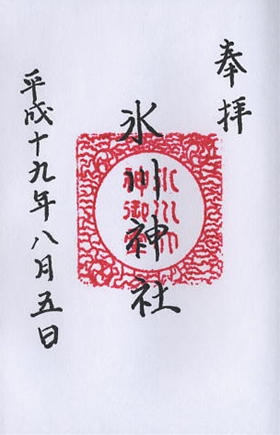 奉拝
氷川神社
氷川大神御璽
平成十九年八月五日